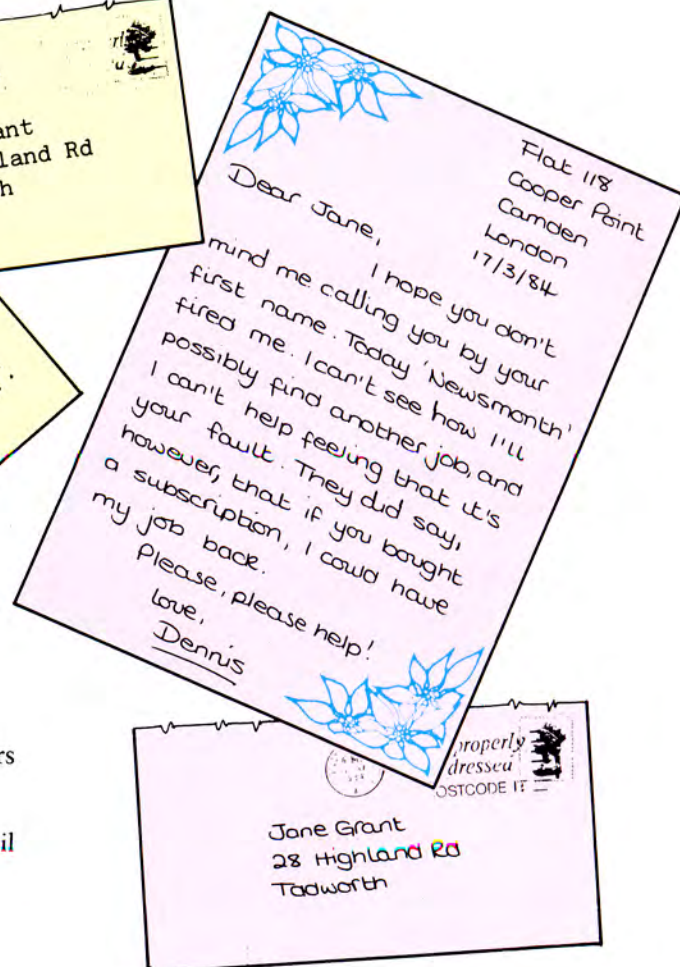 ant
land Rd
h
Flat 118
Cooper Point
Camden
London
17/3/84
Dear Jane,
I hope you don't
mind me calling you by your
first name. Today 'Newsmonth'
fired me. I can't see how I'll
possibly find another job, and
I can't help feeling that it's
your fault. They did say,
however, that if you bought
a subscription, I could have
my job back.
Please, please help!
Love,
Dennis
rs
il
properly
dressed
OSTCODE IT
Jane Grant
28 Highland Rd
Tadworth